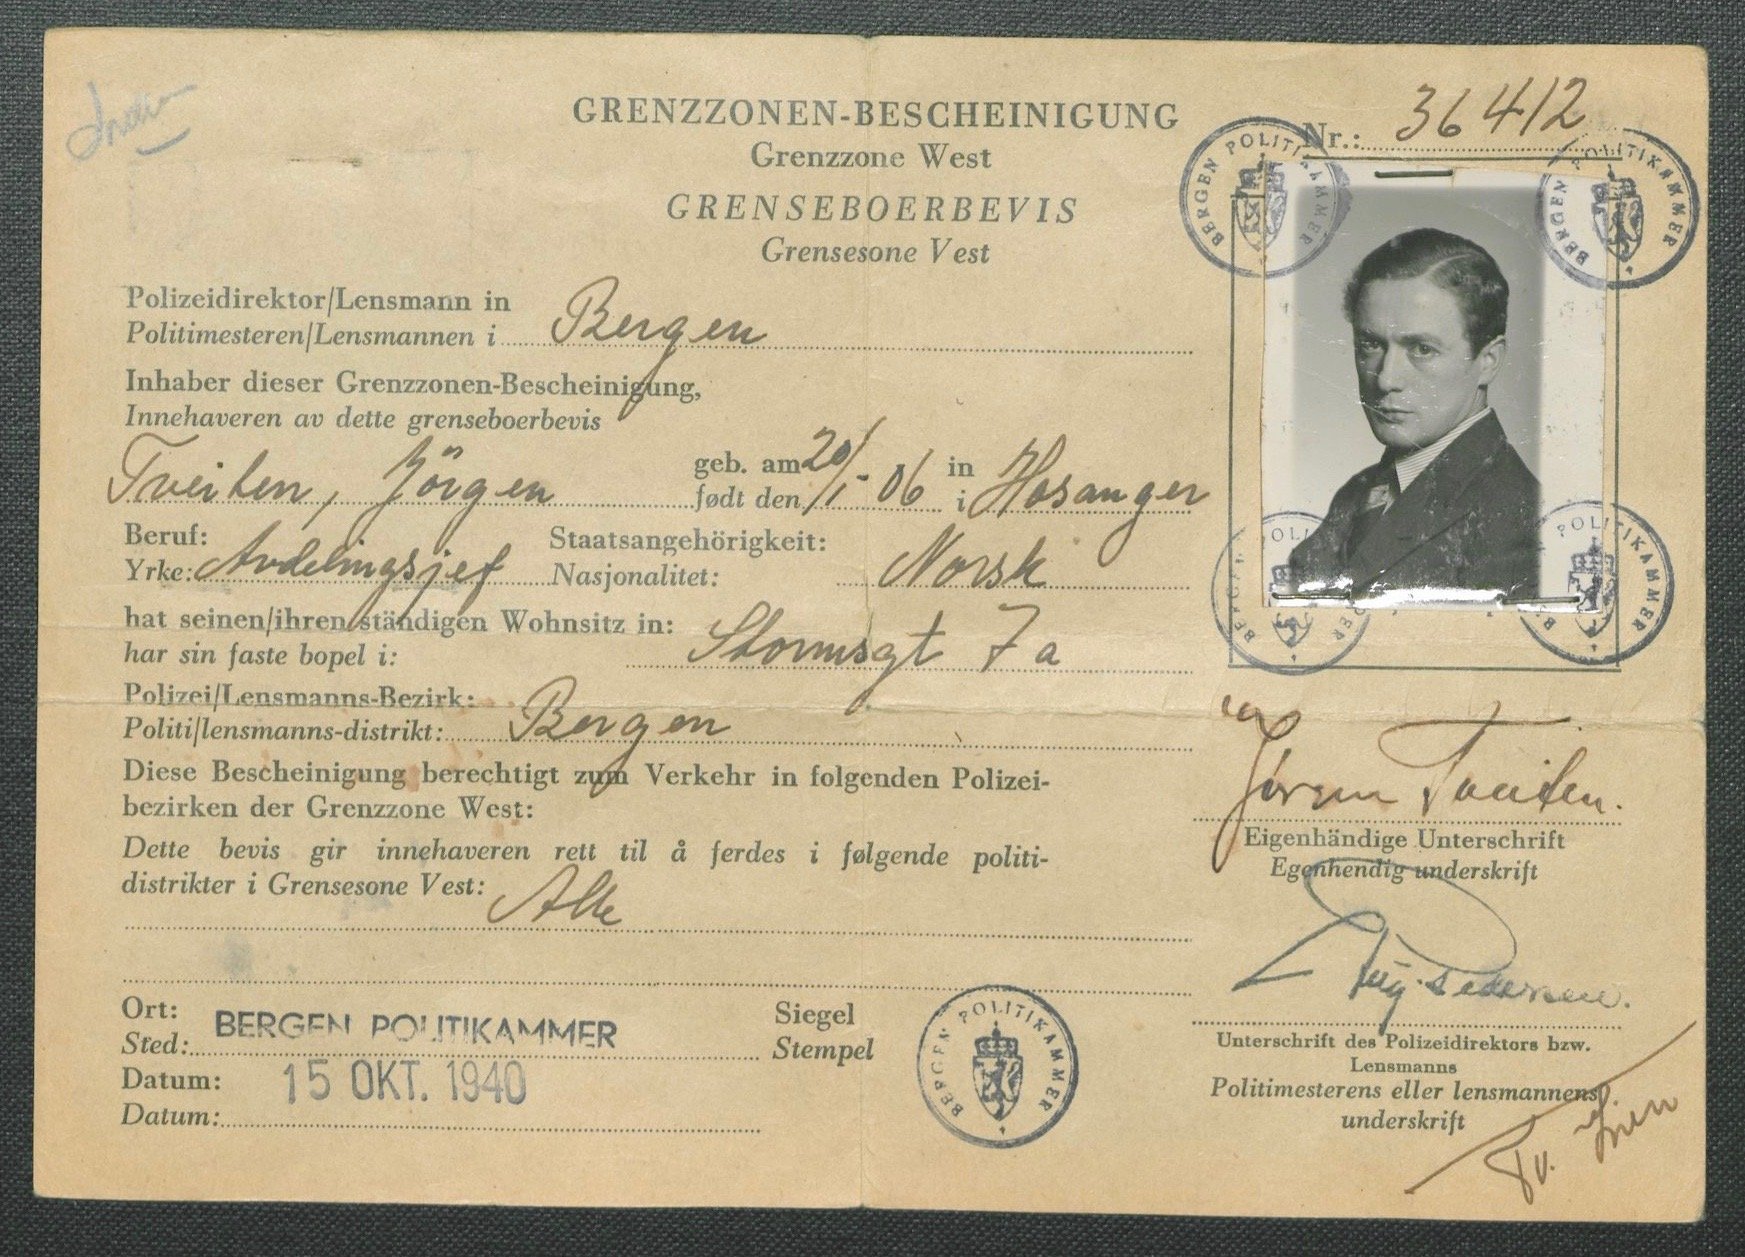 GRENZZONEN-BESCHEINIGUNG
Grenzzone West
GRENSEBOERBEVIS
Grensesone Vest
Nr.: 36412
BERGEN POLITIKAMMER
BERGEN POLITIKAMMER
Polizeidirektor/Lensmann in
Politimesteren/Lensmannen i Bergen
Inhaber dieser Grenzzonen-Bescheinigung,
Innehaveren av dette grenseboerbevis
Tveiten, Jörgen geb. am 20/1-06 in Hosanger
født den i
Beruf: Staatsangehörigkeit:
Yrke: Avdelingsjef Nasjonalitet: Norsk
BERGEN POLITIKAMMER
BERGEN POLITIKAMMER
hat seinen/ihren ständigen Wohnsitz in:
har sin faste bopel i: Stormsgt 7a
Polizei/Lensmanns-Bezirk:
Politi/lensmanns-distrikt: Bergen
Diese Bescheinigung berechtigt zum Verkehr in folgenden Polizei-
bezirken der Grenzzone West:
Dette bevis gir innehaveren rett til å ferdes i følgende politi-
distrikter i Grensesone Vest: Alle
Ort:
Sted: BERGEN POLITIKAMMER
Datum: 15 OKT. 1940
Datum:
Siegel
Stempel
BERGEN POLITIKAMMER
Jørgen Tveiten.
Eigenhändige Unterschrift
Egenhendig underskrift
Unterschrift des Polizeidirektors bzw.
Lensmanns
Politimesterens eller lensmannens
underskrift